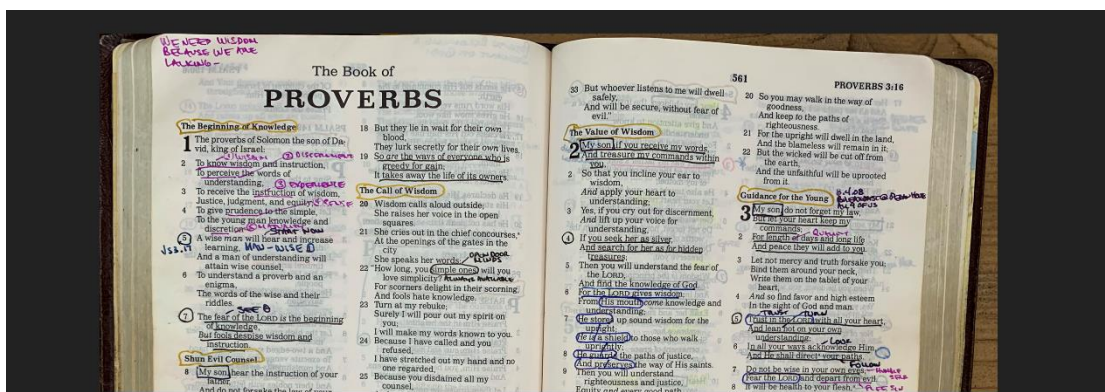 WE NEED WISDOM
BECAUSE WE ARE
LACKING -
The Book of
PROVERBS
The Beginning of Knowledge
1 The proverbs of Solomon the son of Da-
vid, king of Israel:
① WISDOM ② DISCERNMENT
2 To know wisdom and instruction,
To perceive the words of
understanding,
③ EXPERIENCE
3 To receive the instruction of wisdom,
Justice, judgment, and equity;
4 To give prudence to the simple,
To the young man knowledge and
discretion—
START NOW
5 A wise man will hear and increase
learning,
MAN - WISE
And a man of understanding will
attain wise counsel,
6 To understand a proverb and an
enigma,
The words of the wise and their
riddles.
7 The fear of the LORD is the beginning
of knowledge,
But fools despise wisdom and
instruction.
Shun Evil Counsel
8 My son, hear the instruction of your
father,
And do not forsake the law of your
18 But they lie in wait for their own
blood,
They lurk secretly for their own lives.
19 So are the ways of everyone who is
greedy for gain;
It takes away the life of its owners.
The Call of Wisdom
20 Wisdom calls aloud outside;
She raises her voice in the open
squares.
21 She cries out in the chief concourses,*
At the openings of the gates in the
city
OPEN DOOR
She speaks her words:
22 "How long, you simple ones, will you
love simplicity?
ALWAYS AVAILABLE
For scorners delight in their scorning,
And fools hate knowledge.
23 Turn at my rebuke;
Surely I will pour out my spirit on
you;
I will make my words known to you.
24 Because I have called and you
refused,
I have stretched out my hand and no
one regarded,
25 Because you disdained all my
counsel,
561
33 But whoever listens to me will dwell
safely,
And will be secure, without fear of
evil."
The Value of Wisdom
2 My son, if you receive my words,
And treasure my commands within
you,
2 So that you incline your ear to
wisdom,
And apply your heart to
understanding;
3 Yes, if you cry out for discernment,
And lift up your voice for
understanding,
4 If you seek her as silver,
And search for her as for hidden
treasures;
5 Then you will understand the fear of
the LORD,
And find the knowledge of God.
6 For the LORD gives wisdom;
From His mouth come knowledge and
understanding;
7 He stores up sound wisdom for the
upright;
He is a shield to those who walk
uprightly;
8 He guards the paths of justice,
And preserves the way of His saints.
9 Then you will understand
righteousness and justice,
Equity and every good path.
PROVERBS 3:16
20 So you may walk in the way of
goodness,
And keep to the paths of
righteousness.
21 For the upright will dwell in the land,
And the blameless will remain in it;
22 But the wicked will be cut off from
the earth,
And the unfaithful will be uprooted
from it.
Guidance for the Young
3 My son, do not forget my law,
But let your heart keep my
commands;
QUALITY
2 For length of days and long life
And peace they will add to you.
3 Let not mercy and truth forsake you;
Bind them around your neck,
Write them on the tablet of your
heart,
4 And so find favor and high esteem
In the sight of God and man.
TRUST TURN
5 Trust in the LORD with all your heart,
And lean not on your own
understanding;
LOOK
6 In all your ways acknowledge Him,
And He shall direct* your paths.
FOLLOW
7 Do not be wise in your own eyes;
Fear the LORD and depart from evil.
8 It will be health to your flesh,*